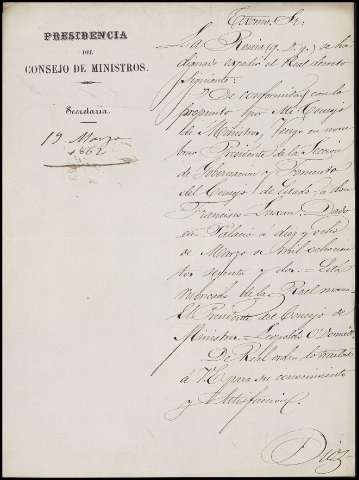 PRESIDENCIA
DEL
CONSEJO DE MINISTROS.
Secretaría.
19 Marzo
1862
Excmo. Sr.
La Reina (q. D. g.) se ha
dignado expedir el Real decreto
siguiente:
"De conformidad con lo
propuesto por Mi Consejo
de Ministros, Vengo en nom
brar Presidente de la Seccion
de Gobernacion y Fomento
del Consejo de Estado, a don
Francisco Luxan. Dado
en Palacio á diez y ocho
de Marzo de mil ochocien
tos sesenta y dos. = Está
rubricado de la Real mano =
El Presidente del Consejo de
Ministros = Leopoldo O'Donnell"
De Real orden lo traslado
á V.E. para su conocimiento
y satisfaccion.
Dios